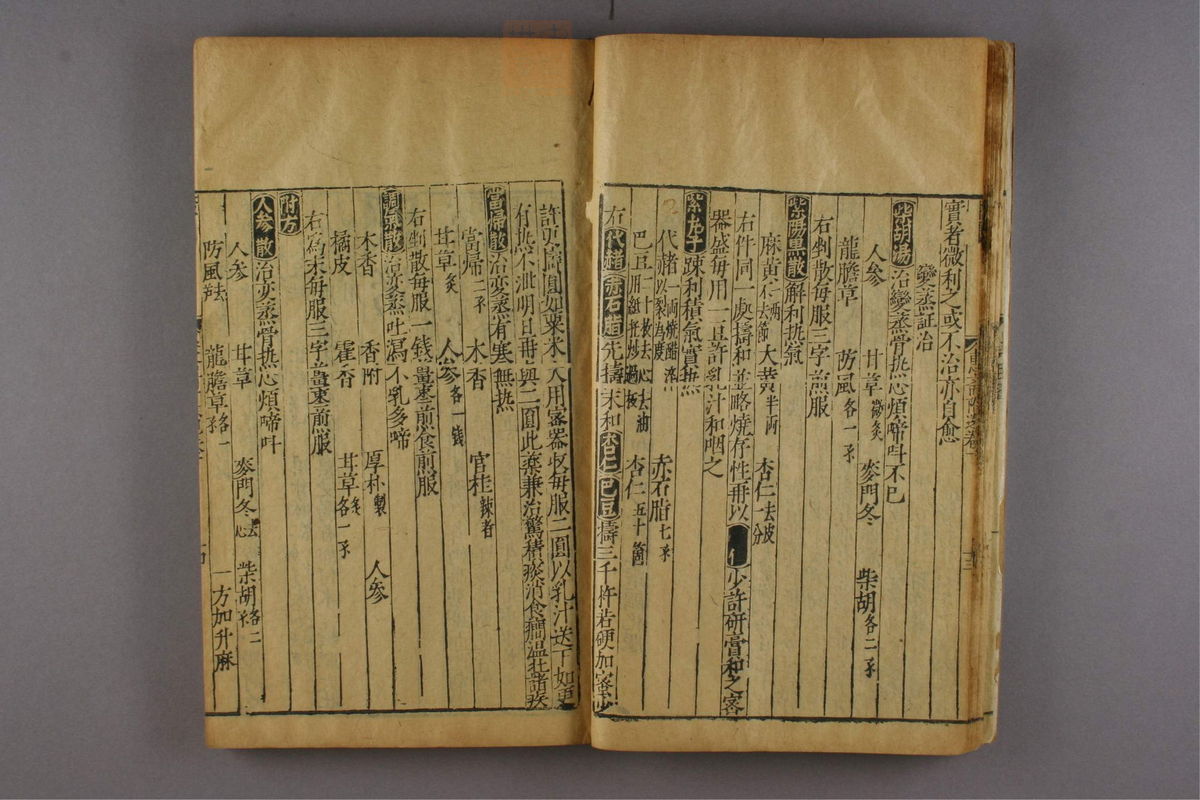 實者微利之或不治亦自愈
變蒸証治
柴胡湯 治變蒸骨热心煩啼呌不已
人参 甘草 微炙 麥門冬 柴胡 各二
龍膽草 防風 各一
右剉散每服三字煎服
紫陽黑散 解利热氣
麻黄 去節 大黄 半両 杏仁 去皮
右件同一處擣和並略燒存性再以 少許研膏和之宻
器盛每用一豆許乳汁和咽之
紫丸子 疎利積氣實热
代赭 一両燒醋淬 赤石脂 七
巴豆 去油 杏仁 五十箇
右 代赭 赤石脂 先擣末和 杏仁 巴豆 擣三千杵若硬加宻少
許更 圓如粟米大用宻器收每服二圓以乳汁送下如更
有热不泄明旦再與二圓此藥兼治驚積痰消食癎温壮諸疾
當歸散 治变蒸有寒無热
當歸 二 木香 官桂 辣者
甘草 炙 人参 各一錢
右剉散每服一錢薑棗煎食前服
調氣散 治变蒸吐瀉不乳多啼
木香 香附 厚朴 製 人参
橘皮 藿香 甘草 炙各一
右為末每服三字薑棗煎服
附方
人参散 治变蒸骨热心煩啼呌
人参 甘草 麥門冬 去心 柴胡 各二
防風 龍膽草 各一 一方加升麻